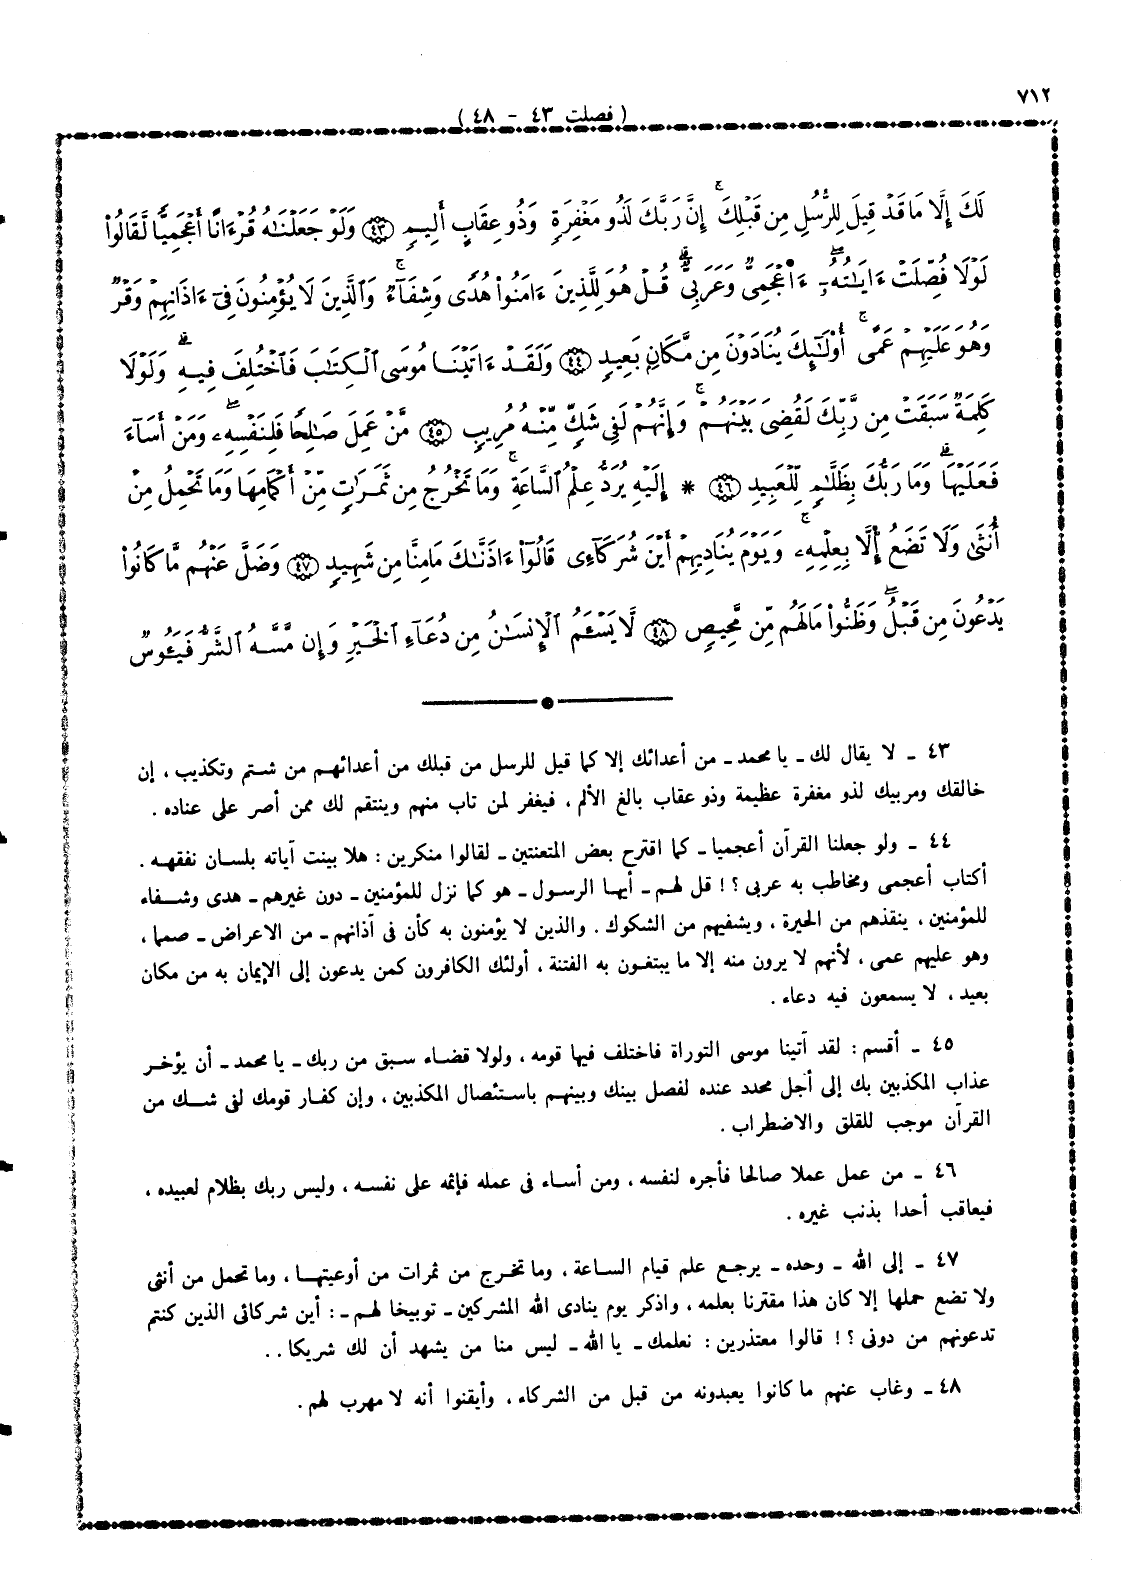 ٧١٢
( فصلت ٤٣ - ٤٨ )
لَكَ إِلَّا مَا قَدْ قِيلَ لِلرُّسُلِ مِن قَبْلِكَ ۚ إِنَّ رَبَّكَ لَذُو مَغْفِرَةٍ وَذُو عِقَابٍ أَلِيمٍ ﴿٤٣﴾ وَلَوْ جَعَلْنَٰهُ قُرْءَانًا أَعْجَمِيًّا لَّقَالُوا۟
لَوْلَا فُصِّلَتْ ءَايَٰتُهُۥٓ ۖ ءَا۬عْجَمِىٌّ وَعَرَبِىٌّ ۗ قُلْ هُوَ لِلَّذِينَ ءَامَنُوا۟ هُدًى وَشِفَآءٌ ۚ وَٱلَّذِينَ لَا يُؤْمِنُونَ فِىٓ ءَاذَانِهِمْ وَقْرٌ
وَهُوَ عَلَيْهِمْ عَمًى ۚ أُو۟لَٰٓئِكَ يُنَادَوْنَ مِن مَّكَانٍۭ بَعِيدٍ ﴿٤٤﴾ وَلَقَدْ ءَاتَيْنَا مُوسَى ٱلْكِتَٰبَ فَٱخْتُلِفَ فِيهِ ۗ وَلَوْلَا
كَلِمَةٌ سَبَقَتْ مِن رَّبِّكَ لَقُضِىَ بَيْنَهُمْ ۚ وَإِنَّهُمْ لَفِى شَكٍّ مِّنْهُ مُرِيبٍ ﴿٤٥﴾ مَّنْ عَمِلَ صَٰلِحًا فَلِنَفْسِهِۦ ۖ وَمَنْ أَسَآءَ
فَعَلَيْهَا ۗ وَمَا رَبُّكَ بِظَلَّٰمٍ لِّلْعَبِيدِ ﴿٤٦﴾ * إِلَيْهِ يُرَدُّ عِلْمُ ٱلسَّاعَةِ ۚ وَمَا تَخْرُجُ مِن ثَمَرَٰتٍ مِّنْ أَكْمَامِهَا وَمَا تَحْمِلُ مِنْ
أُنثَىٰ وَلَا تَضَعُ إِلَّا بِعِلْمِهِۦ ۚ وَيَوْمَ يُنَادِيهِمْ أَيْنَ شُرَكَآءِى قَالُوٓا۟ ءَاذَنَّٰكَ مَامِنَّا مِن شَهِيدٍ ﴿٤٧﴾ وَضَلَّ عَنْهُم مَّا كَانُوا۟
يَدْعُونَ مِن قَبْلُ ۖ وَظَنُّوا۟ مَالَهُم مِّن مَّحِيصٍ ﴿٤٨﴾ لَّا يَسْـَٔمُ ٱلْإِنسَٰنُ مِن دُعَآءِ ٱلْخَيْرِ وَإِن مَّسَّهُ ٱلشَّرُّ فَيَـُٔوسٌ
٤٣ ـ لا يقال لك ـ يا محمد ـ من أعدائك إلا كما قيل للرسل من قبلك من أعدائهم من شتم وتكذيب ، إن
خالقك ومربيك لذو مغفرة عظيمة وذو عقاب بالغ الألم ، فيغفر لمن تاب منهم وينتقم لك ممن أصر على عناده .
٤٤ ـ ولو جعلنا القرآن أعجميا ـ كما اقترح بعض المتعنتين ـ لقالوا منكرين : هلا بينت آياته بلسان نفقهه .
أكتاب أعجمى ومخاطب به عربى ؟ ! قل لهم ـ أيها الرسول ـ هو كما نزل للمؤمنين ـ دون غيرهم ـ هدى وشفاء
للمؤمنين ، ينقذهم من الحيرة ، ويشفيهم من الشكوك . والذين لا يؤمنون به كأن فى آذانهم ـ من الاعراض ـ صمما ،
وهو عليهم عمى ، لأنهم لا يرون منه إلا ما يبتغون به الفتنة ، أولئك الكافرون كمن يدعون إلى الإيمان به من مكان
بعيد ، لا يسمعون فيه دعاء .
٤٥ ـ أقسم : لقد آتينا موسى التوراة فاختلف فيها قومه ، ولولا قضاء سبق من ربك ـ يا محمد ـ أن يؤخر
عذاب المكذبين بك إلى أجل محدد عنده لفصل بينك وبينهم باستئصال المكذبين ، وإن كفار قومك لفى شك من
القرآن موجب للقلق والاضطراب .
٤٦ ـ من عمل عملا صالحا فأجره لنفسه ، ومن أساء فى عمله فإثمه على نفسه ، وليس ربك بظلام لعبيده ،
فيعاقب أحدا بذنب غيره .
٤٧ ـ إلى الله ـ وحده ـ يرجع علم قيام الساعة ، وما تخرج من ثمرات من أوعيتها ، وما تحمل من أنثى
ولا تضع حملها إلا كان هذا مقترنا بعلمه ، واذكر يوم ينادى الله المشركين ـ توبيخا لهم ـ : أين شركائى الذين كنتم
تدعونهم من دونى ؟ ! قالوا معتذرين : نعلمك ـ يا الله ـ ليس منا من يشهد أن لك شريكا . .
٤٨ ـ وغاب عنهم ما كانوا يعبدونه من قبل من الشركاء ، وأيقنوا أنه لا مهرب لهم .